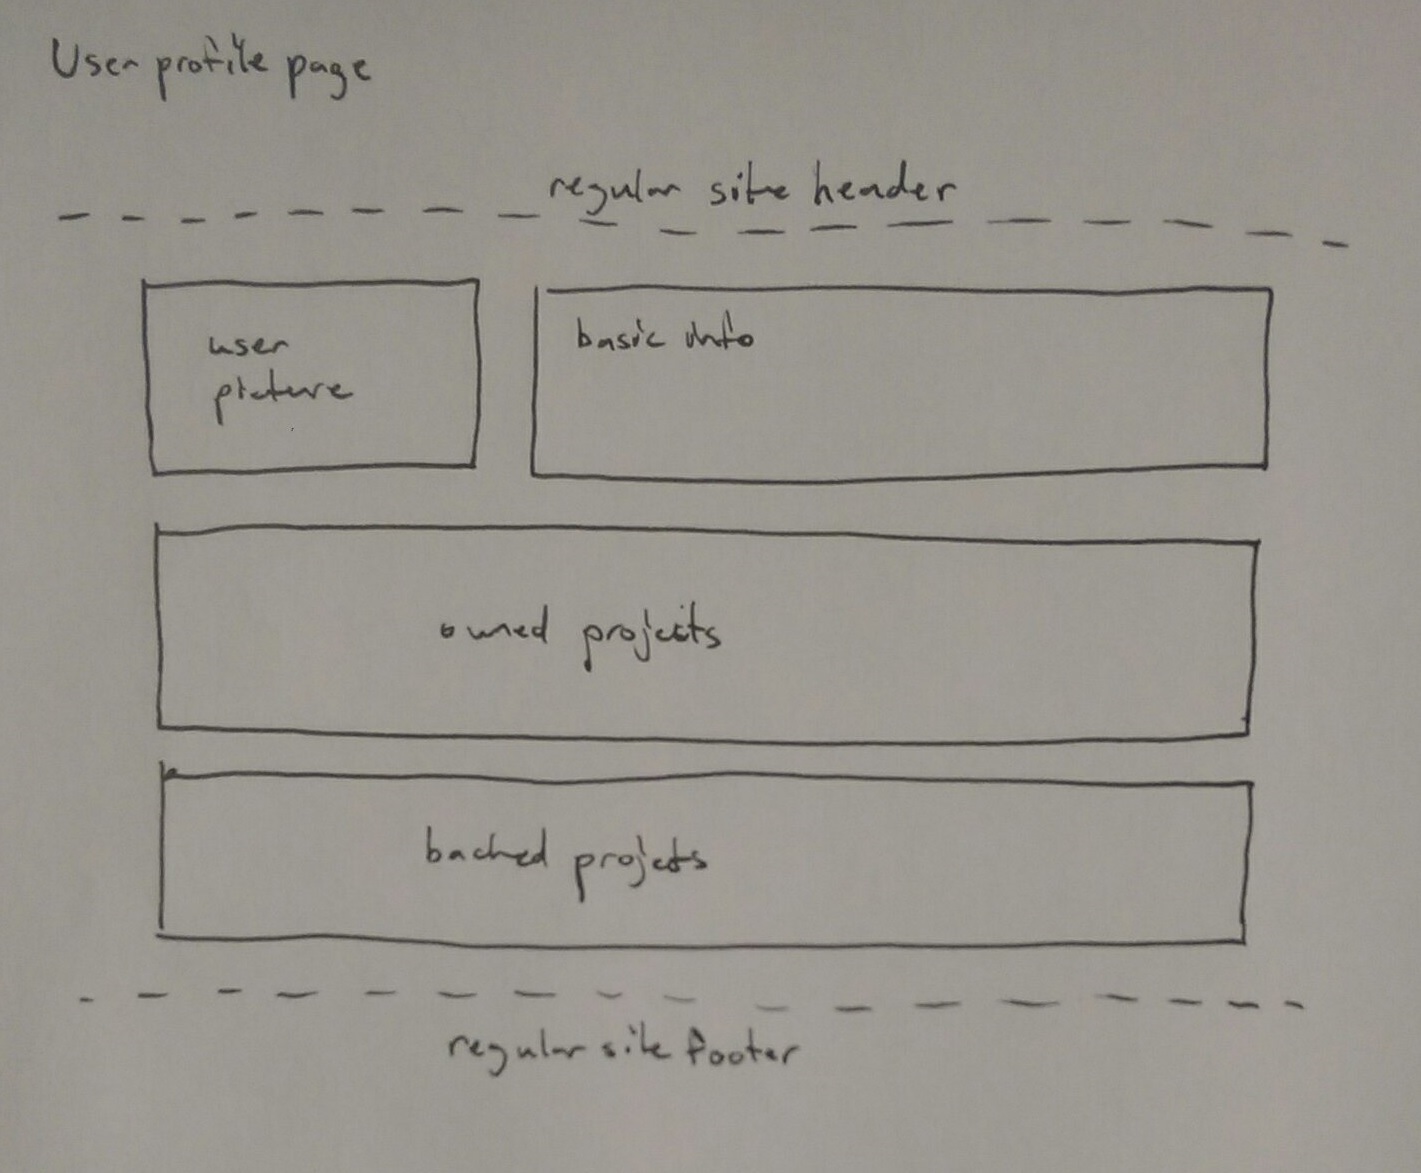 User profile page
regular site header
user
picture
basic info
owned projects
backed projects
regular site footer